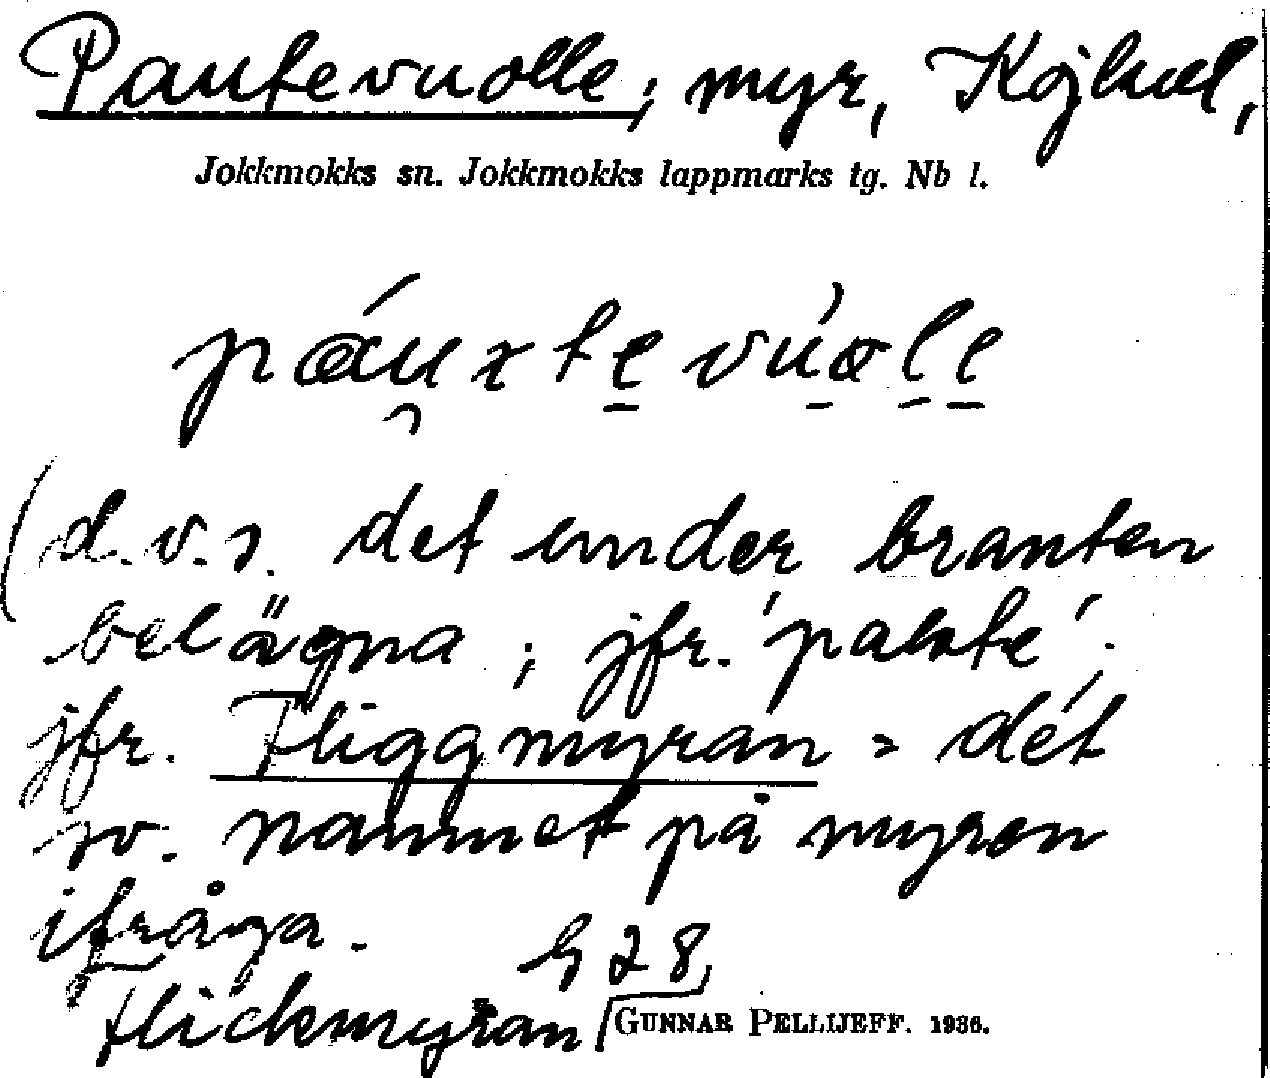 Pautevuolle; myr, Kojkul,
Jokkmokks sn. Jokkmokks lappmarks tg. Nb l.
(d.v.s. det under branten
belägna; jfr. 'pakte'.
jfr. Fliggmyran = det
sv. namnet på myren
ifråga.
G 28
Flickmyran
GUNNAR PELLIJEFF. 1936.